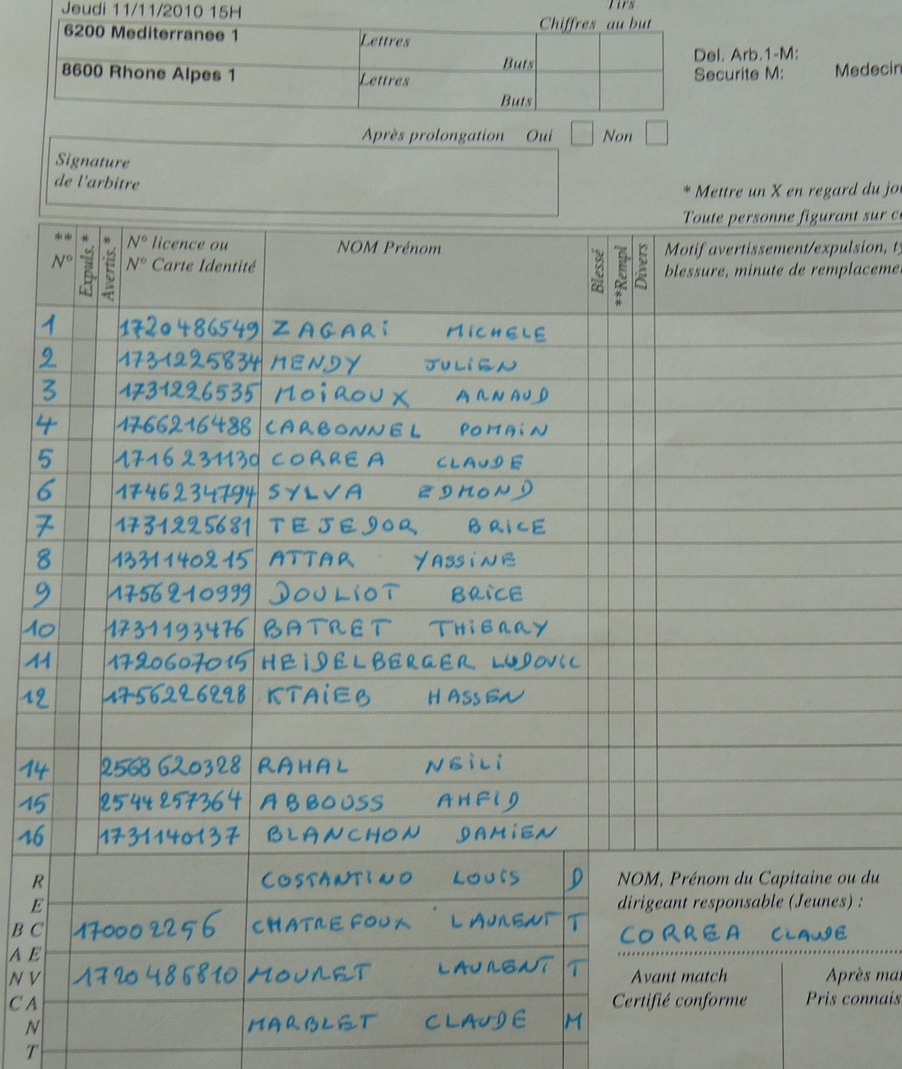 Jeudi 11/11/2010 15H
Tirs
Chiffres au but
6200 Mediterranee 1 Lettres
Buts
8600 Rhone Alpes 1 Lettres
Buts
Del. Arb.1-M:
Securite M: Medecin
Après prolongation Oui Non
Signature
de l'arbitre
* Mettre un X en regard du
Toute personne figurant sur
** N° Expuls.* Avertis.* N° licence ou N° Carte Identité NOM Prénom Blessé **Rempl Divers Motif avertissement/expulsion,
blessure, minute de
1 1720486549 ZAGARI MICHELE
2 1731225834 MENDY JULIEN
3 1731226535 MOIROUX ARNAUD
4 1766216488 CARBONNEL ROMAIN
5 1716231130 CORREA CLAUDE
6 1746234794 SYLVA EDMOND
7 1731225681 TEJEDOR BRICE
8 1331140215 ATTAR YASSINE
9 1756210999 DOULIOT BRICE
10 1731193476 BATRET THIERRY
11 1720607015 HEIDELBERGER LUDOVIC
12 1756226228 KTAIEB HASSEN
14 2568620328 RAHAL NEILI
15 2544257364 ABBOUSS AHFID
16 1731140137 BLANCHON DAMIEN
BANC
RECEVANT
COSTANTINO LOUIS D
170002256 CHATREFOUX LAURENT T
1720486810 MOURET LAURENT T
MARBLET CLAUDE M
NOM, Prénom du Capitaine ou du
dirigeant responsable (Jeunes) :
CORREA CLAUDE
Avant match Après
Certifié conforme Pris